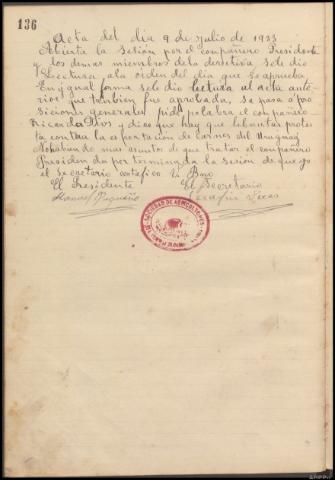 136
Acta del dia 9 de Julio de 1933
Abierta la Sesión por el compañero Presidente
y los demas miembros de la derectiva se le dio
Lecctura, a la orden del dia que se aprueba
En y gual forma se le dio lectura al acta ante-
rior que tambien fue aprobada, se pasa a pro
siciones Generales pide palabra el compañero
Ricardo Rios y dice que hay que lebantar protes
ta contra la esportación de Carnes del Uruguay
No habiendo mas asuntos de que tratar el compañero
Presiden da por terminada la sesión de que yo
el Secretario certefico Vº Bno
El Presidente El Secretario
Manuel Pequeño Serafin
SOCIEDAD DE AGRICULTORES